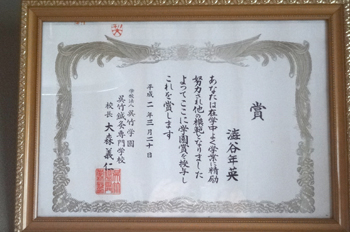 賞
澁谷年英
あなたは在学中よく学業に精励
努力され他の模範となりました
よってここに学園賞を授与し
これを賞します
平成二年三月二十日
学校法人 呉竹学園
呉竹鍼灸専門学校
校長 大森義仁